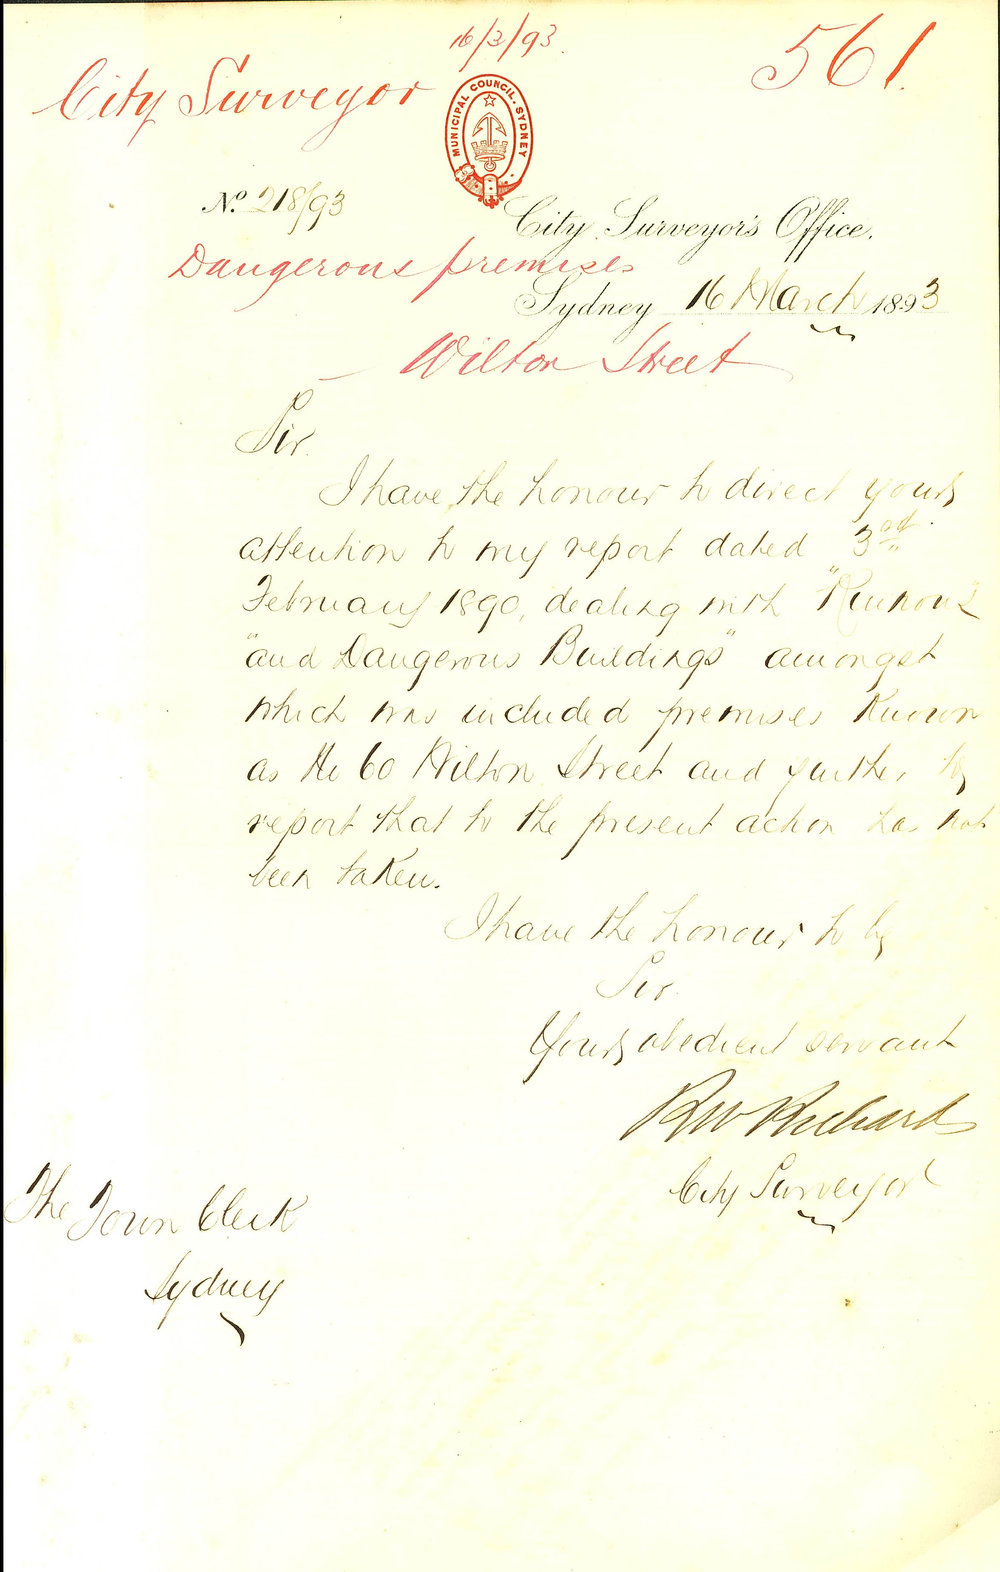 16/3/93.
561.
City Surveyor
MUNICIPAL COUNCIL. SYDNEY
No. 218/93
City Surveyor's Office.
Dangerous premises
Sydney 16 March 1893
Wilton Street
Sir.
I have the honour to direct your
attention to my report dated 3rd
February 1890, dealing with "Ruinous
"and Dangerous Buildings" amongst
which was included premises known
as No 60 Wilton Street and further to
report that to the present action has not
been taken.
I have the honour to be
Sir.
Your obedient servant
RW Richards
City Surveyor
The Town Clerk
Sydney